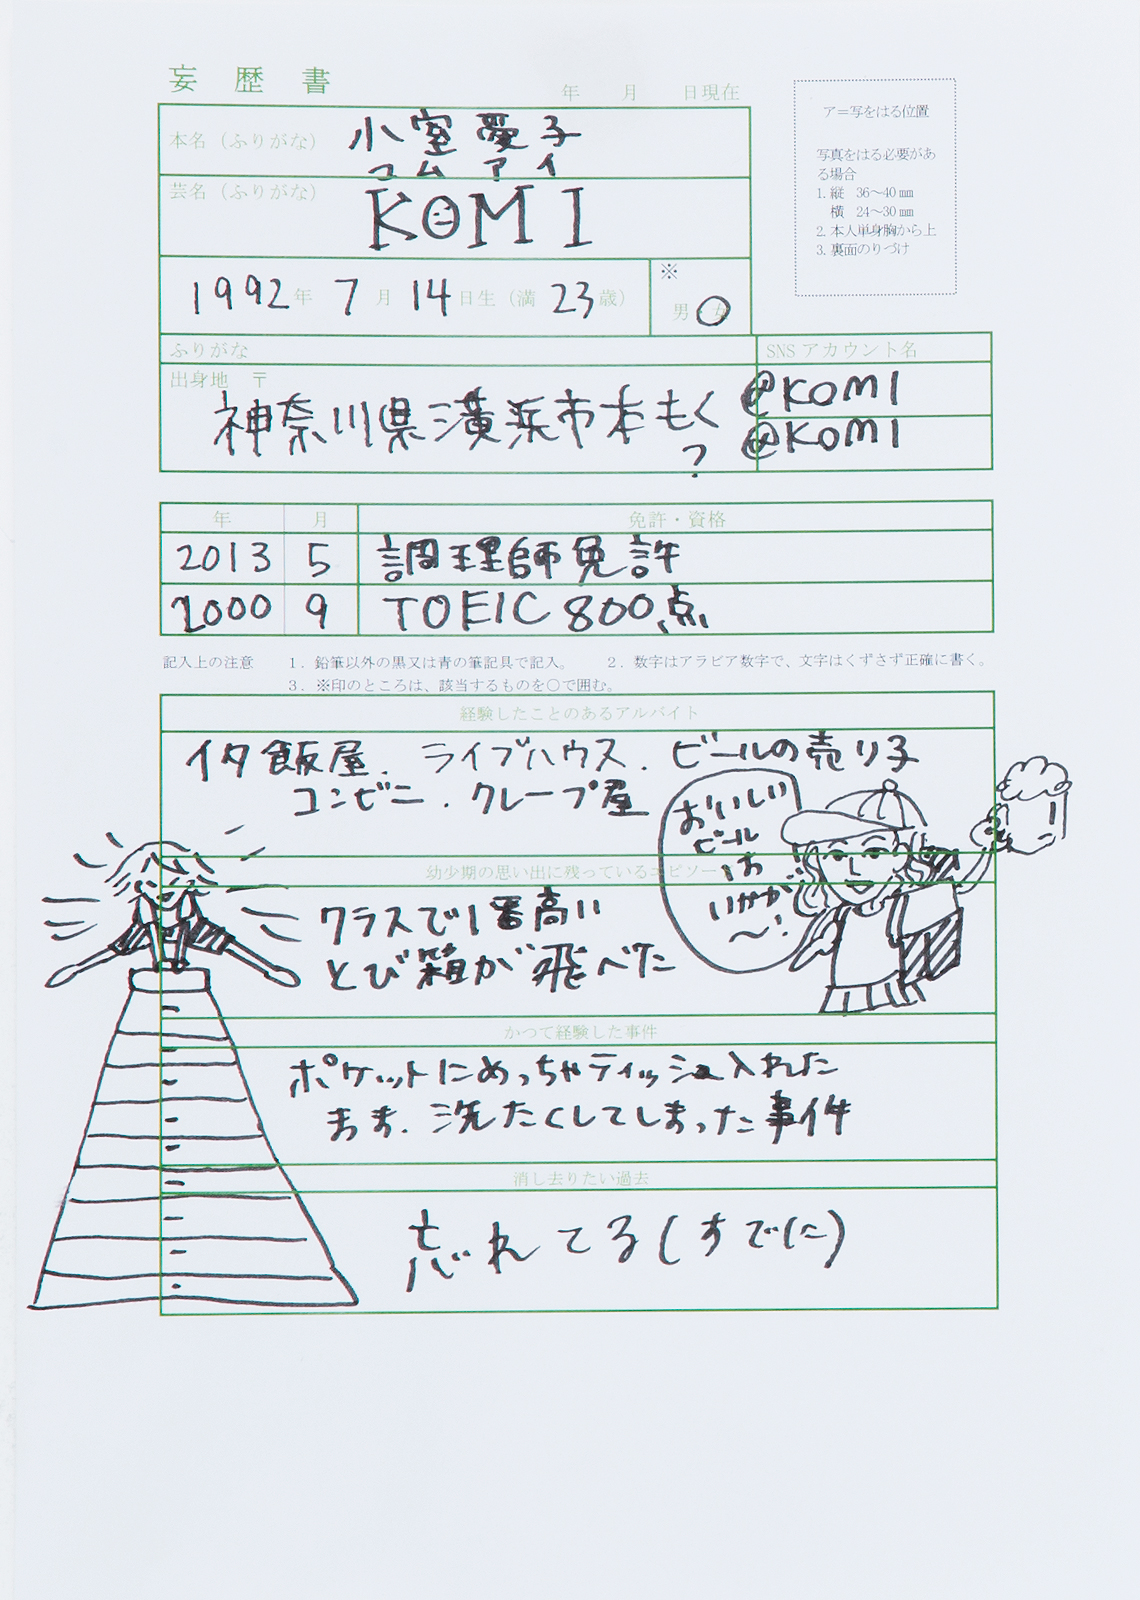 妄歴書
年 月 日現在
ア=写をはる位置
写真をはる必要があ
る場合
1. 縦 36〜40㎜
横 24〜30㎜
2. 本人単身胸から上
3. 裏面のりづけ
本名（ふりがな） 小室愛子
コムアイ
芸名（ふりがな） KOMI
1992年 7月 14日生（満 23歳）
※
男・女
ふりがな
SNSアカウント名
出身地 〒
神奈川県横浜市本もく
?
@KOMI
@KOMI
年 月 免許・資格
2013 5 調理師免許
2000 9 TOEIC 800点
記入上の注意 1. 鉛筆以外の黒又は青の筆記具で記入。 2. 数字はアラビア数字で、文字はくずさず正確に書く。
3. ※印のところは、該当するものを○で囲む。
経験したことのあるアルバイト
イタ飯屋. ライブハウス. ビールの売り子
コンビニ. クレープ屋
おいしい
ビール
は
いかが
〜!
幼少期の思い出に残っているエピソード
クラスで1番高い
とび箱が飛べた
かつて経験した事件
ポケットにめっちゃティッシュ入れた
まま. 洗たくしてしまった事件
消し去りたい過去
忘れてる(すでに)